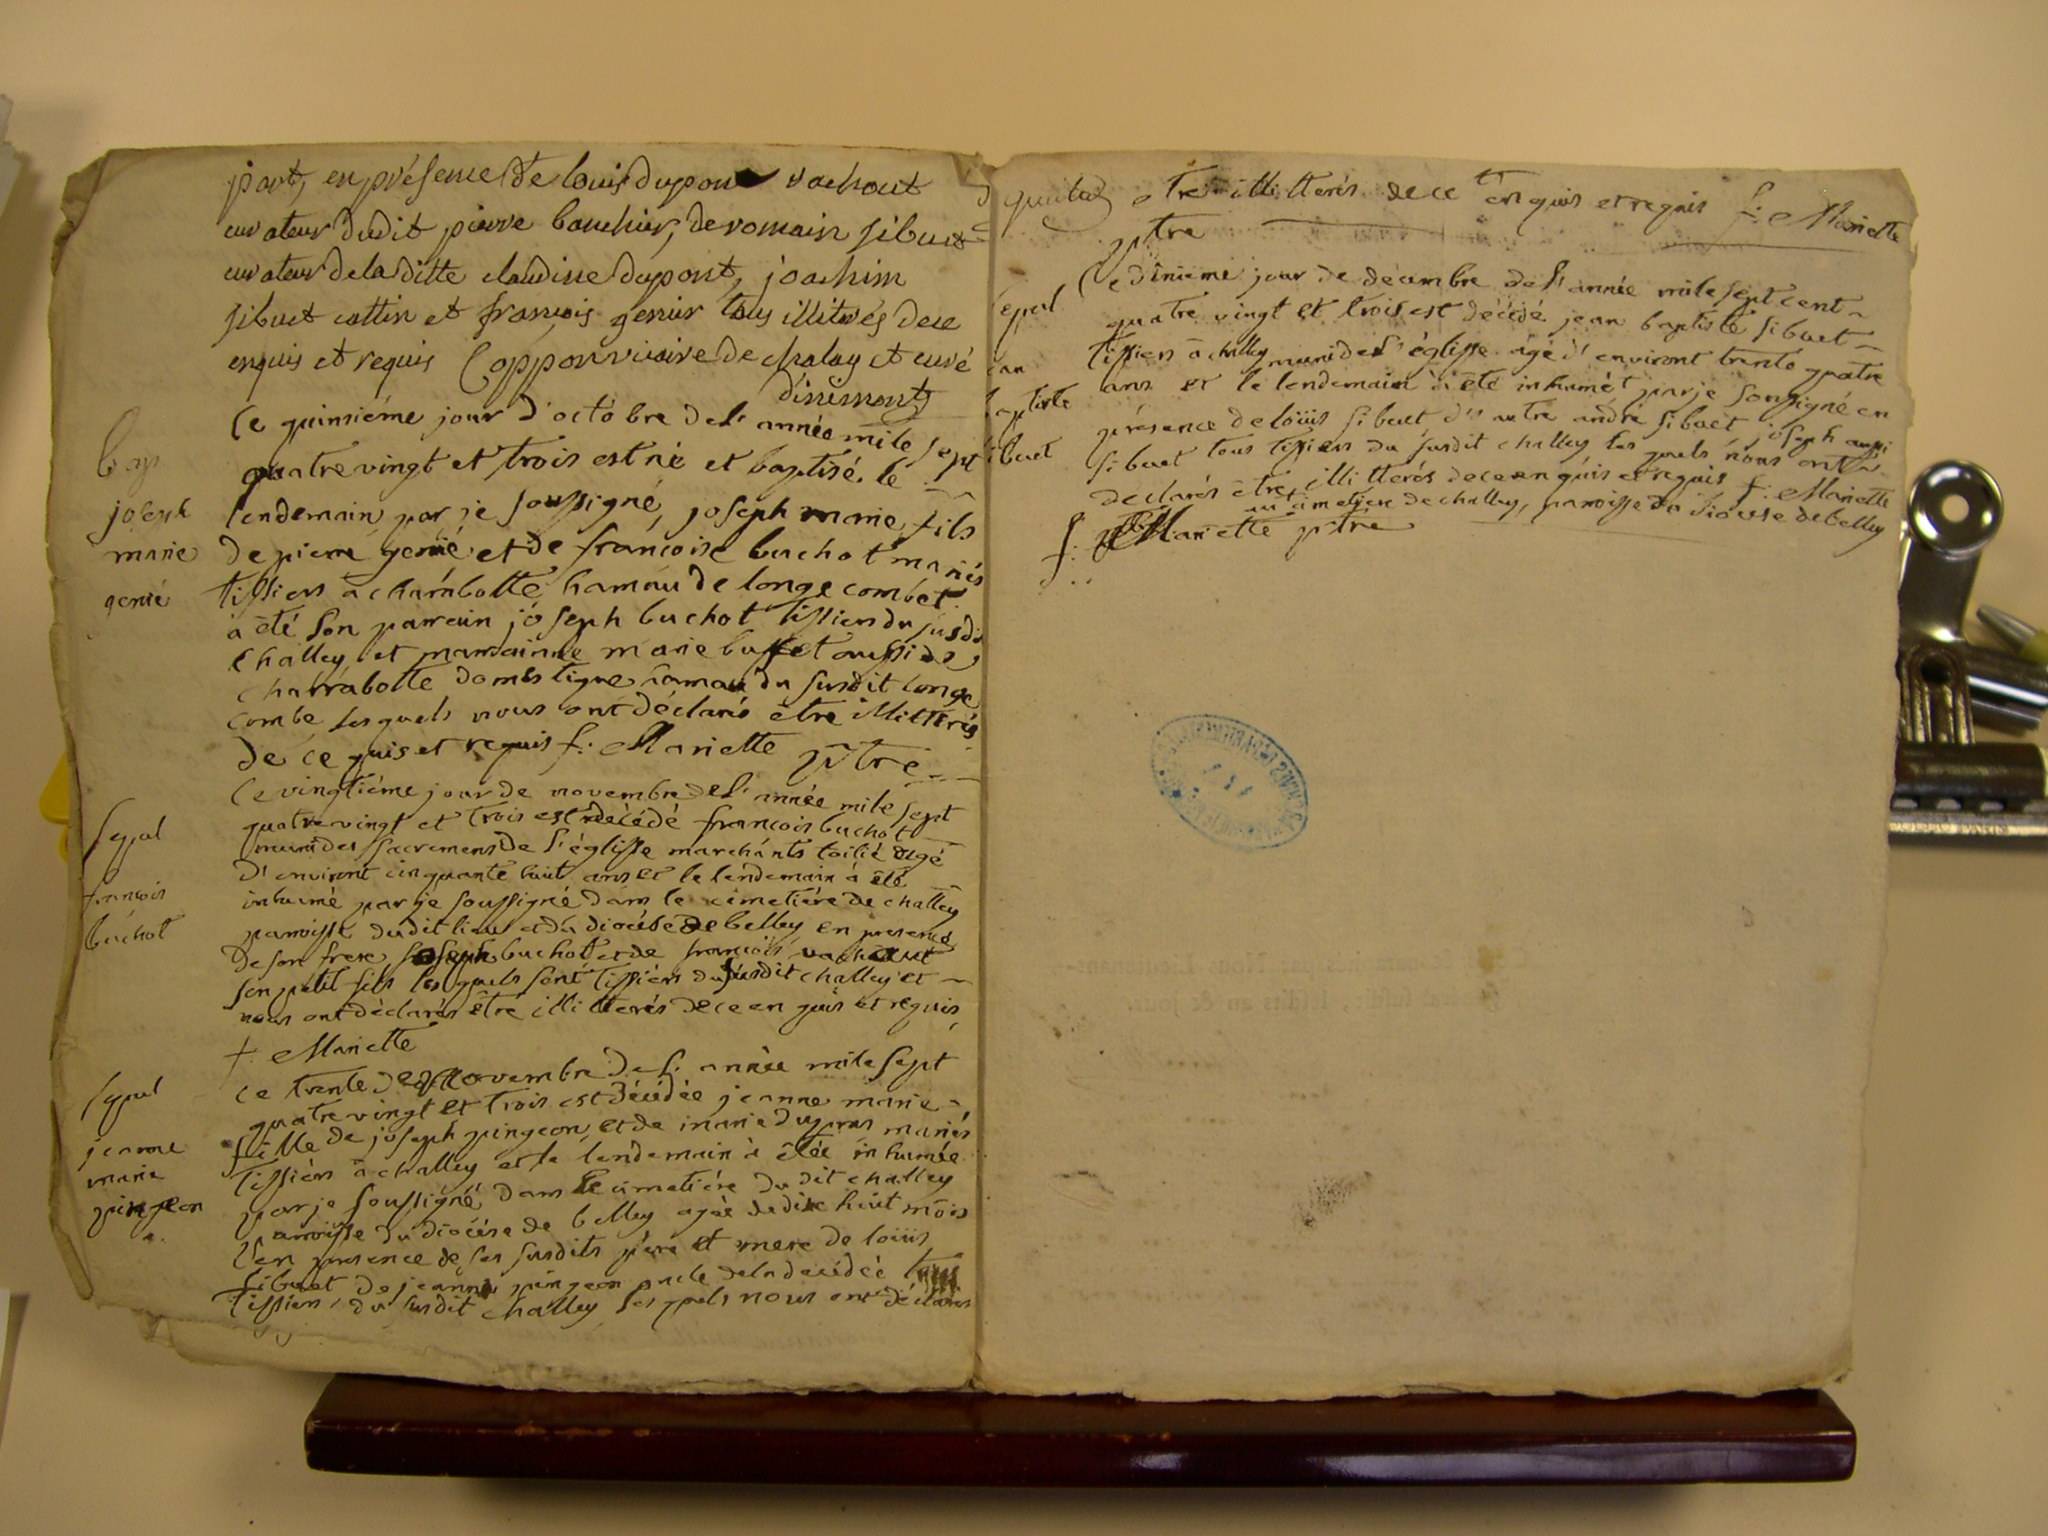 part, en présence de louis dupont vachout
curateur dudit pierre bouchier, de romain sibuet
curateur de la ditte claudine dupont, joachim
sibuet cottin et françois genier tous illiterés de ce
enquis et requis Coppon vicaire de chaley et curé
d'
Le quinsiéme jour d'octobre de l'année mile sept
quatre vingt et trois est né et baptisé le
Bap
joseph
marie
genié
lendemain par je soussigné, joseph marie fils
de pierre genié et de françoise buchot mariés
tissiers à charabotte hamau de longe combet
à été son parrein joseph buchot tissier du susdit
challey et marrainne marie buffet aussi de
charrabotte domestique hamau du susdit longe
combe lesquels nous ont déclarés être illitterés
de ce quis et requis f: Mariette ptre
Le vingtiéme jour de novembre de l'année mile sept
quatre vingt et trois est décédé francois buchot
Sepul
francois
buchot
muni des sacremens de l'églisse marchants toilié âgé
d'environt cinquante huit ans et le lendemain à été
inhumé par je soussigné dans le cimetiére de challey
parroisse dudit lieu et du diocése de belley en presence
de son frere joseph buchot et de francois vachout
son petit fils lesquels sont tissiérs du susdit challey et
nous ont déclarés être illitterés de ce en quis et requis
f: Mariette
Le trente de Novembre de l'année mile sept
quatre vingt et trois est décédée jeanne marie
Sepul
jeanne
marie
pingeon
fille de joseph pingeon et de marie dupras mariés
tissiérs à challey et le lendemain à étée inhumée
par je soussigné dans le cimetiére du dit challey
parroisse du diocése de belley agée de dix huit mois
en presence de ses susdits pére et mere de loüis
sibuet de jeanne pingeon oncle de la décédée tous
tissiers du susdit challey lesquels nous ont déclarés
être illitterés de ce en quis et requis f: Mariette
ptre
Sepul
jean
baptiste
sibuet
Le dixieme jour de décembre de l'année mile sept cent
quatre vingt et trois est décédé jean baptiste sibuet
tissiers à challey muni de l'églisse âgé d'environt trente quatre
ans et le lendemain à été inhumé par je sousigné en
présence de loüis sibuet, d'autre andré sibuet joseph aussi
sibuet tous tissiers du susdit challey lesquels nous ont
déclarés être illitterés de ce en quis et requis f: Mariette
au cimetiere de challey, parroisse du diocese de belley
f: Mariette ptre